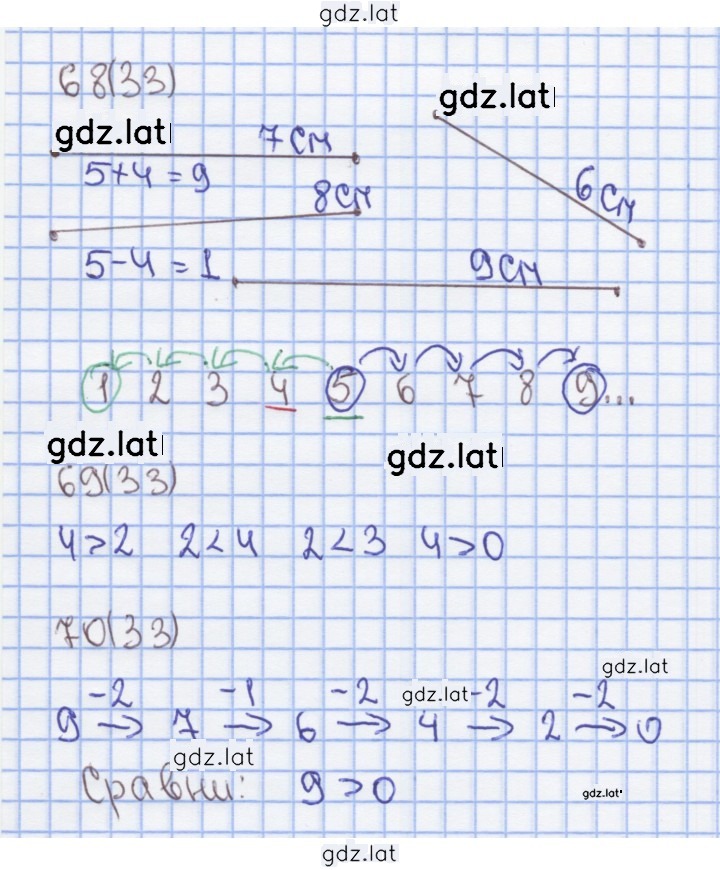 gdz.lat
68(33)
gdz.lat
gdz.lat
7 см
5+4=9
6 см
8 см
5-4=1
9 см
1 2 3 4 5 6 7 8 9...
gdz.lat
gdz.lat
69(33)
4>2 2<4 2<3 4>0
70(33)
gdz.lat
-2 -1 -2 gdz.lat -2 -2
9 → 7 → 6 → 4 → 2 → 0
gdz.lat
Сравни: 9>0
gdz.lat
gdz.lat